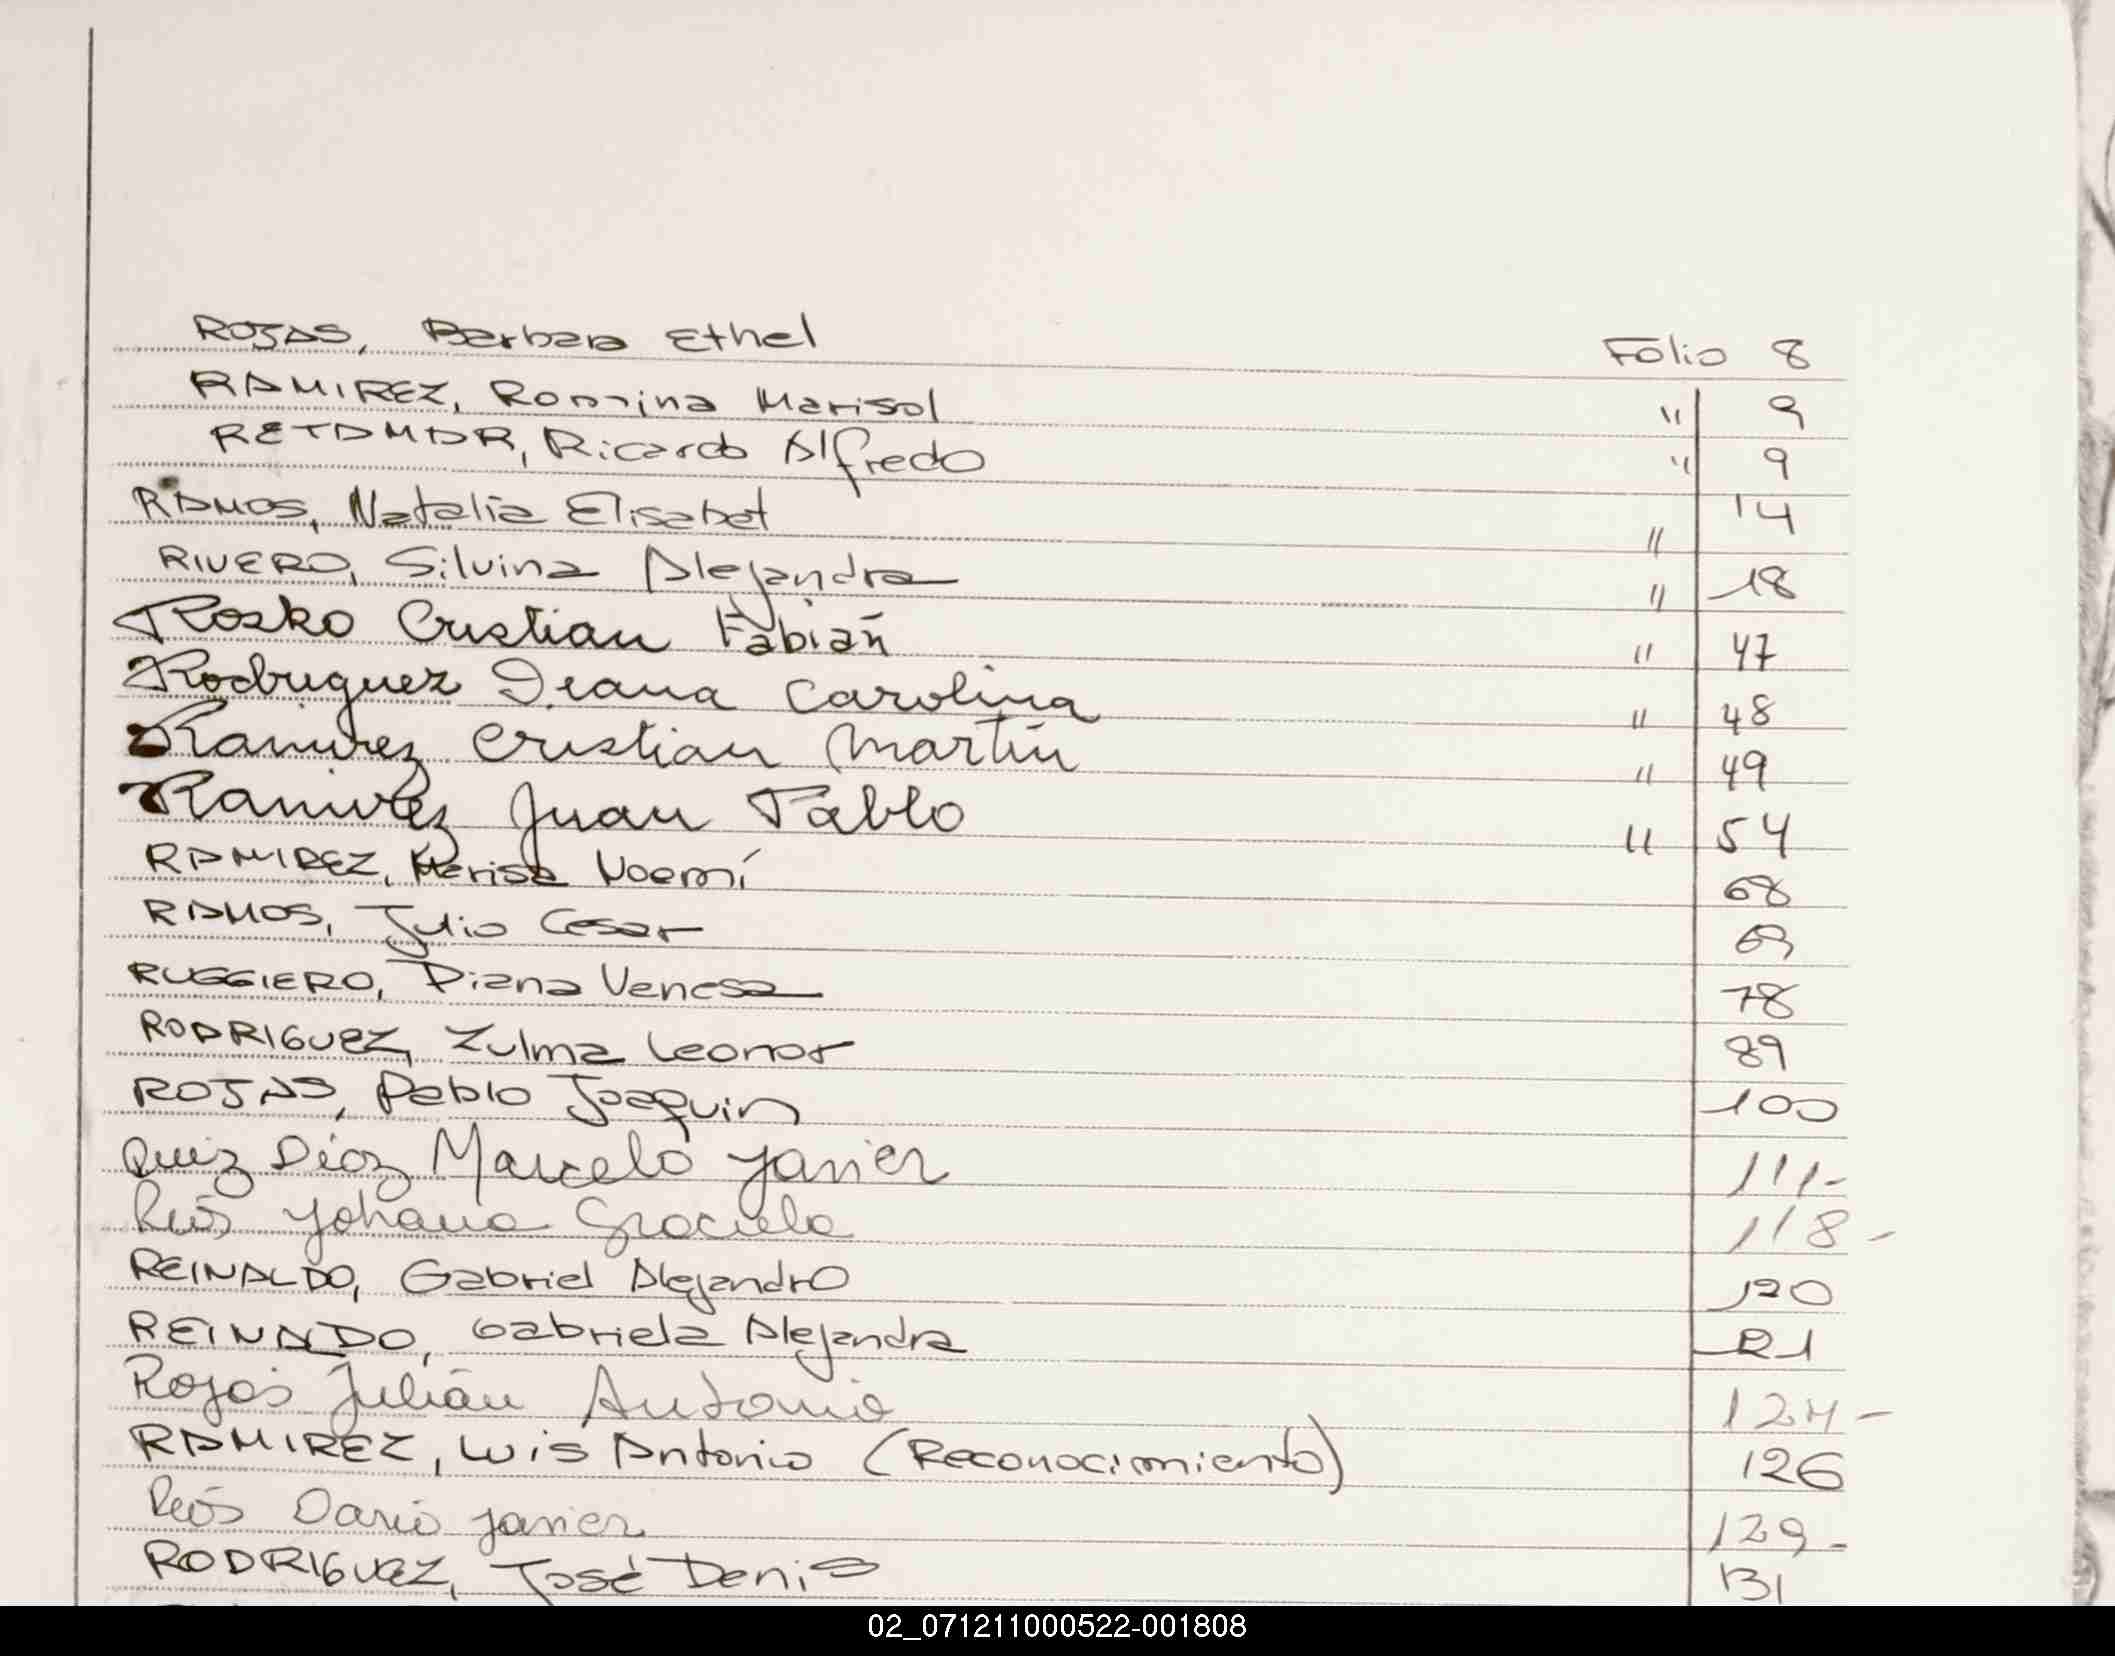 ROJAS, Barbara Ethel Folio 8
RAMIREZ, Romina Marisol " 9
RETAMAR, Ricardo Alfredo " 9
RAMOS, Natalia Elisabet " 14
RIVERO, Silvina Alejandra " 18
Rosko Cristian Fabian " 47
Rodriguez Ileana Carolina " 48
Ramirez Cristian Martín " 49
Ramirez Juan Pablo " 54
RAMIREZ, Marisa Noemí 68
RAMOS, Julio Cesar 69
RUGGIERO, Diana Vanesa 78
RODRIGUEZ, Zulma Leonor 89
ROJAS, Pablo Joaquin 100
Ruiz Díaz Marcelo Javier 111-
Ríos Yohana Graciela 118-
REINALDO, Gabriel Alejandro 120
REINALDO, Gabriela Alejandra 121
Rojas Julián Antonio 124-
RAMIREZ, Luis Antonio (Reconocimiento) 126
Ríos Darío Javier 129-
RODRIGUEZ, José Denis 131
02_071211000522-001808